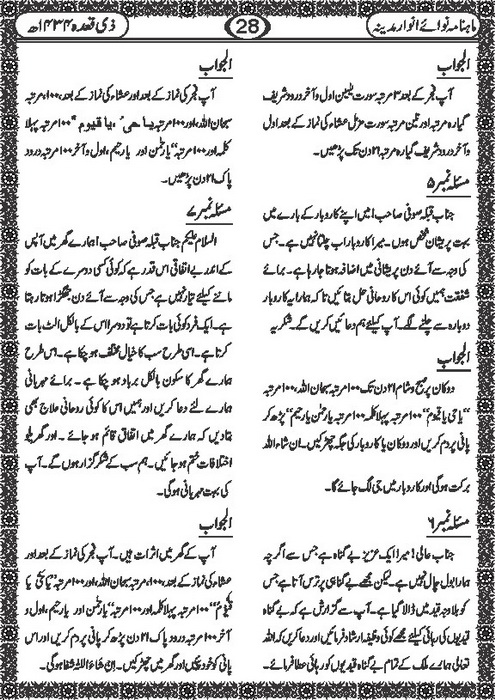 ماہنامہ نوائے انوار مدینہ
28
ذی قعدہ ۱۴۳۴ھ
الجواب
آپ فجر کے بعد ۳ مرتبہ سورت یٰسین اول و آخر درود شریف
گیارہ مرتبہ اور تین مرتبہ سورت مزمل عشاء کی نماز کے بعد اول
و آخر درود شریف گیارہ مرتبہ ۲۱ دن تک پڑھیں۔
مسئلہ نمبر ۵
جناب قبلہ صوفی صاحب! میں اپنے کاروبار کے بارے میں
بہت پریشان شخص ہوں۔ میرا کاروبار اب چلتا نہیں ہے۔ جس
کی وجہ سے آئے دن پریشانی میں اضافہ ہوتا جا رہا ہے۔ برائے
شفقت ہمیں کوئی اس کا روحانی حل بتائیں تاکہ ہمارا یہ کاروبار
دوبارہ سے چلنے لگے۔ آپ کیلئے ہم دعائیں کریں گے۔ شکریہ
الجواب
دوکان پر صبح و شام ۲۱ دن تک ۱۰۰ مرتبہ سبحان اللہ، ۱۰۰ مرتبہ
”یا حی یا قیوم“ ۱۰۰ مرتبہ پہلا کلمہ ۱۰۰ مرتبہ یا رحمٰن یا رحیم“ پڑھ کر
پانی پر دم کریں اور دوکان یا کاروبار کی جگہ چھڑکیں۔ ان شاء اللہ
برکت ہوگی اور کاروبار میں جی لگ جائے گا۔
مسئلہ نمبر ۶
جناب عالی! میرا ایک عزیز بے گناہ ہے جس سے اگرچہ
ہمارا بول چال نہیں ہے۔ لیکن مجھے بے گناہی پر ترس آتا ہے جس
کو بلاوجہ قید میں ڈالا گیا ہے۔ آپ سے گزارش ہے کہ بے گناہ
قیدیوں کی رہائی کیلئے مجھے کوئی وظیفہ ارشاد فرمائیں اور دعا کریں کہ اللہ
تعالیٰ ہمارے ملک کے تمام بے گناہ قیدیوں کو رہائی عطا فرمائے۔
الجواب
آپ فجر کی نماز کے بعد اور عشاء کی نماز کے بعد، ۱۰۰ مرتبہ
سبحان اللہ، اور ۱۰۰ مرتبہ یا حی، یا قیوم“ ۱۰۰ مرتبہ پہلا
کلمہ اور ۱۰۰ مرتبہ ”یا رحمٰن اور یا رحیم، اول و آخر ۱۰۰ مرتبہ درود
پاک ۲۱ دن پڑھیں۔
مسئلہ نمبر ۷
السلام علیکم جناب قبلہ صوفی صاحب! ہمارے گھر میں آپس
کے اندر بے اتفاقی اس قدر ہے کہ کوئی کسی دوسرے کے بات کو
ماننے کیلئے تیار نہیں ہے جس کی وجہ سے آئے دن جھگڑا ہوتا رہتا
ہے۔ ایک فرد کوئی بات کرتا ہے تو دوسرا اس کے بالکل الٹ بات
کرتا ہے۔ اسی طرح سب کا خیال مختلف ہو چکا ہے۔ اس طرح
ہمارے گھر کا سکون بالکل برباد ہو چکا ہے۔ برائے مہربانی
ہمارے لئے دعا کریں اور ہمیں اس کا کوئی روحانی علاج بھی
بتادیں کہ ہمارے گھر میں اتفاق قائم ہو جائے۔ اور گھریلو
اختلافات ختم ہو جائیں۔ ہم سب کے شکر گزار ہوں گے۔ آپ
کی بہت مہربانی ہوگی۔
الجواب
آپ کے گھر میں اثرات ہیں۔ آپ فجر کی نماز کے بعد اور
عشاء کی نماز کے بعد، ۱۰۰ مرتبہ سبحان اللہ، اور ۱۰۰ مرتبہ ”یا حَیُّ یا
قَیُّوْمُ“ ۱۰۰ مرتبہ پہلا کلمہ اور ۱۰۰ مرتبہ ”یا رحمٰن اور یا رحیم، اول و
آخر ۱۰۰ مرتبہ درود پاک ۲۱ دن پڑھ کر پانی پر دم کریں اور اس
پانی کو خود پیئیں اور گھر میں چھڑکیں۔ اِنْ شَاءَ اللہ شفا ہوگی۔